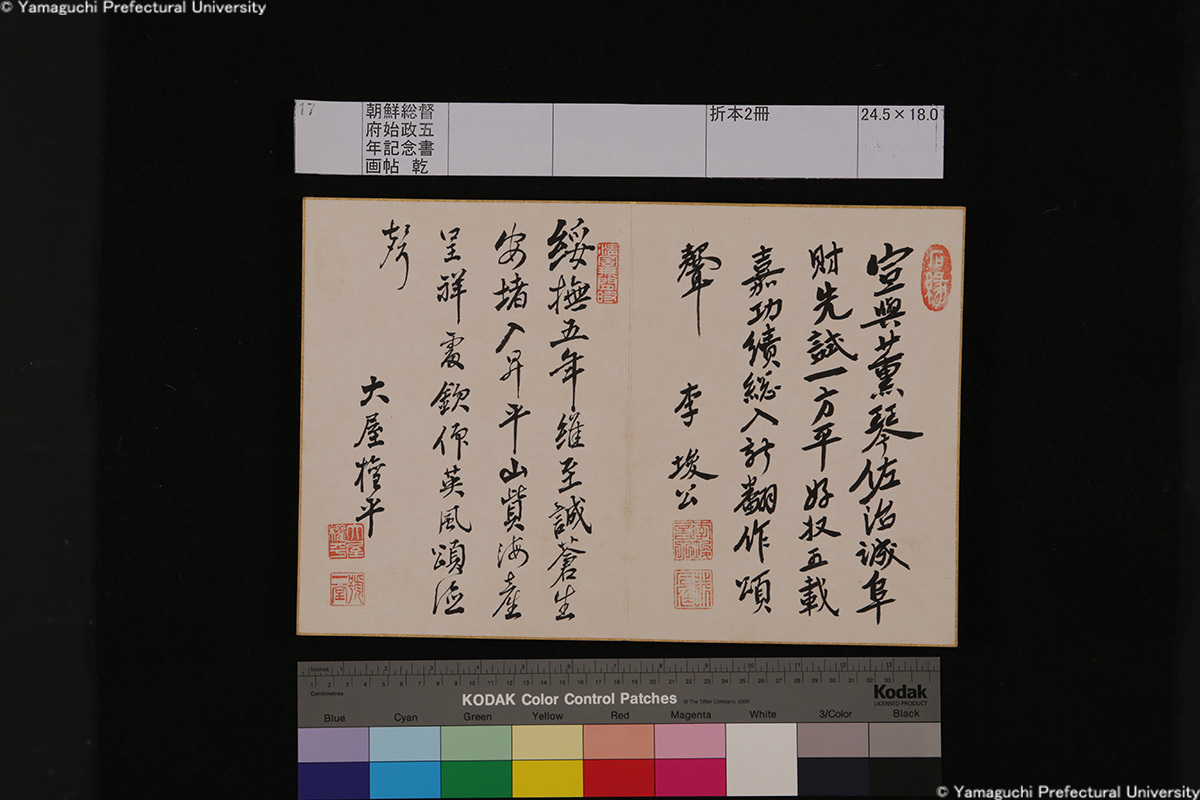 © Yamaguchi Prefectural University
17
朝鮮総督
府始政五
年記念書
画帖 乾
折本2冊
24.5×18.0
宣與薫琴佐治誠阜
財先試一方平好収五載
嘉功績総入新翻作頌
聲
李埈公
綏撫五年維至誠蒼生
安堵入昇平山貲海産
呈祥處欽仰英風頌
聲
大屋権平
Inches
Centimetres
KODAK Color Control Patches
© The Tiffen Company, 2000
Kodak
LICENSED PRODUCT
Blue Cyan Green Yellow Red Magenta White 3/Color Black
© Yamaguchi Prefectural University